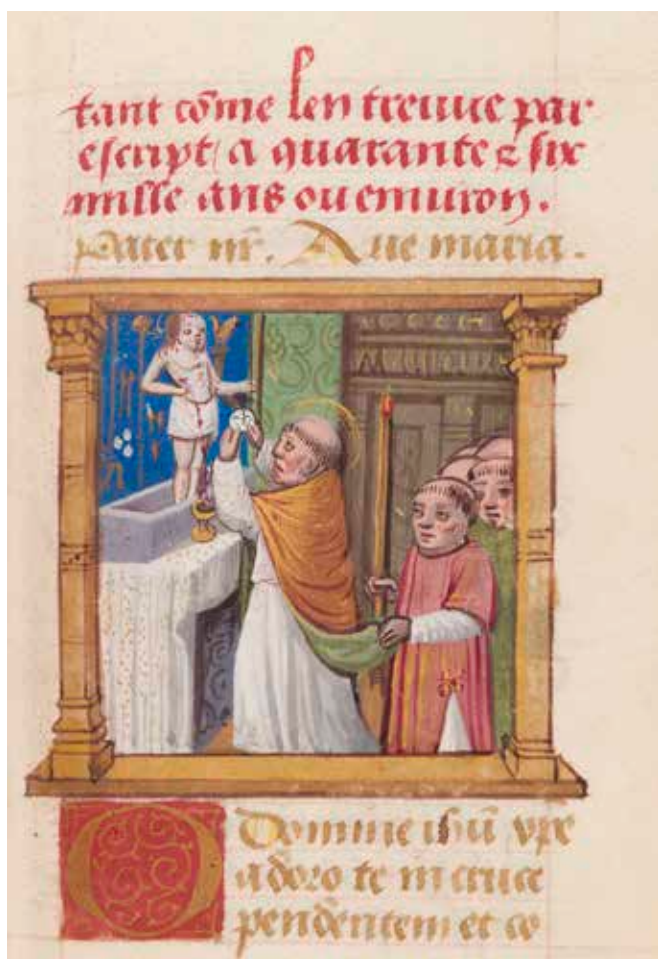 tant cōme len treuue par
escript a quarante & six
mille ans ou enuiron.
Pater nr̄. Aue maria.
O Domine ihū xp̄e
adoro te in cruce
pendentem et co